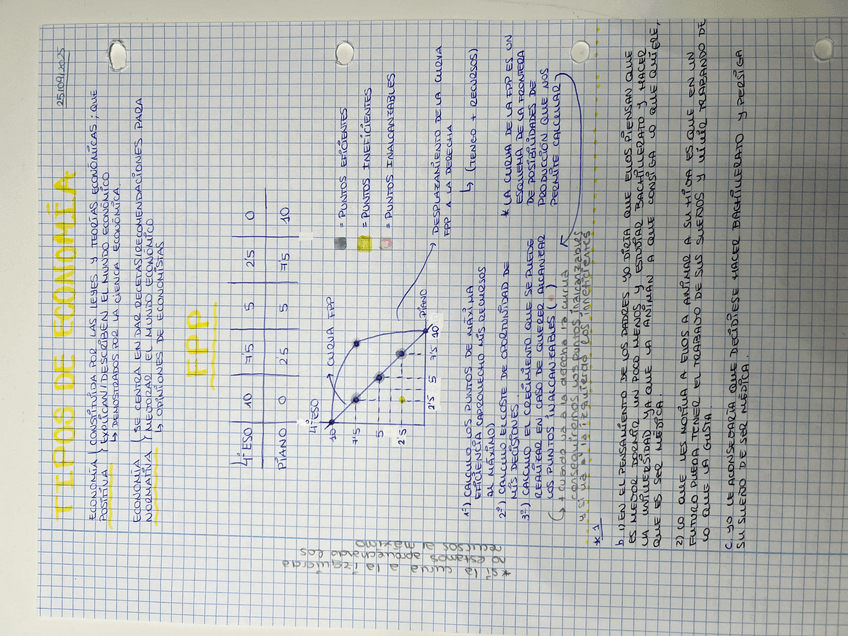 25/09/2025
TIPOS DE ECONOMÍA
ECONOMÍA POSITIVA
CONSTITUIDA POR LAS LEYES Y TEORÍAS ECONÓMICAS; QUE
EXPLICAN/DESCRIBEN EL MUNDO ECONÓMICO
↳ DEMOSTRADOS POR LA CIENCIA ECONÓMICA.
ECONOMÍA NORMATIVA
SE CENTRA EN DAR RECETAS/RECOMENDACIONES PARA
MEJORAR EL MUNDO ECONÓMICO
↳ OPINIONES DE ECONOMISTAS
FPP
4ºESO 10 7'5 5 2'5 0
PIANO 0 2'5 5 7'5 10
4ºESO
10
7'5
5
2'5
2'5 5 7'5 10
PIANO
CURVA FPP
= PUNTOS EFICIENTES
= PUNTOS INEFICIENTES
= PUNTOS INALCANZABLES
DESPLAZAMIENTO DE LA CURVA
FPP A LA DERECHA
↳ (TENGO + RECURSOS)
1º) CALCULO LOS PUNTOS DE MÁXIMA
EFICIENCIA (APROVECHO MIS RECURSOS
AL MÁXIMO)
2º) CALCULO EL COSTE DE OPORTUNIDAD DE
MIS DECISIONES
3º) CALCULO EL CRECIMIENTO QUE SE PUEDE
REALIZAR EN CASO DE QUERER ALCANZAR
LOS PUNTOS INALCANZABLES ( )
* LA CURVA DE LA FPP ES UN
ESQUEMA DE LA FRONTERA
DE POSIBILIDADES DE
PRODUCCIÓN QUE NOS
PERMITE CALCULAR
↳ cuando va a la derecha la curva
conseguimos los puntos inalcanzables
y si va a la izquierda los ineficientes
*si la curva a la izquierda
no estamos aprovechando los
recursos al máximo
*1
b. 1) EN EL PENSAMIENTO DE LOS PADRES YO DIRÍA QUE ELLOS PIENSAN QUE
ES MEJOR DORMIR UN POCO MENOS Y ESTUDIAR BACHILLERATO Y HACER
LA UNIVERSIDAD YA QUE LA ANIMAN A QUE CONSIGA LO QUE QUIERE,
QUE ES SER MÉDICA
2) LO QUE LES MOTIVA A ELLOS A ANIMAR A SU HIJA ES QUE EN UN
FUTURO PUEDA TENER EL TRABAJO DE SUS SUEÑOS Y VIVIR TRABANDO DE
LO QUE LA GUSTA
C. YO LE ACONSEJARÍA QUE DECIDIESE HACER BACHILLERATO Y PERSIGA
SU SUEÑO DE SER MÉDICA.